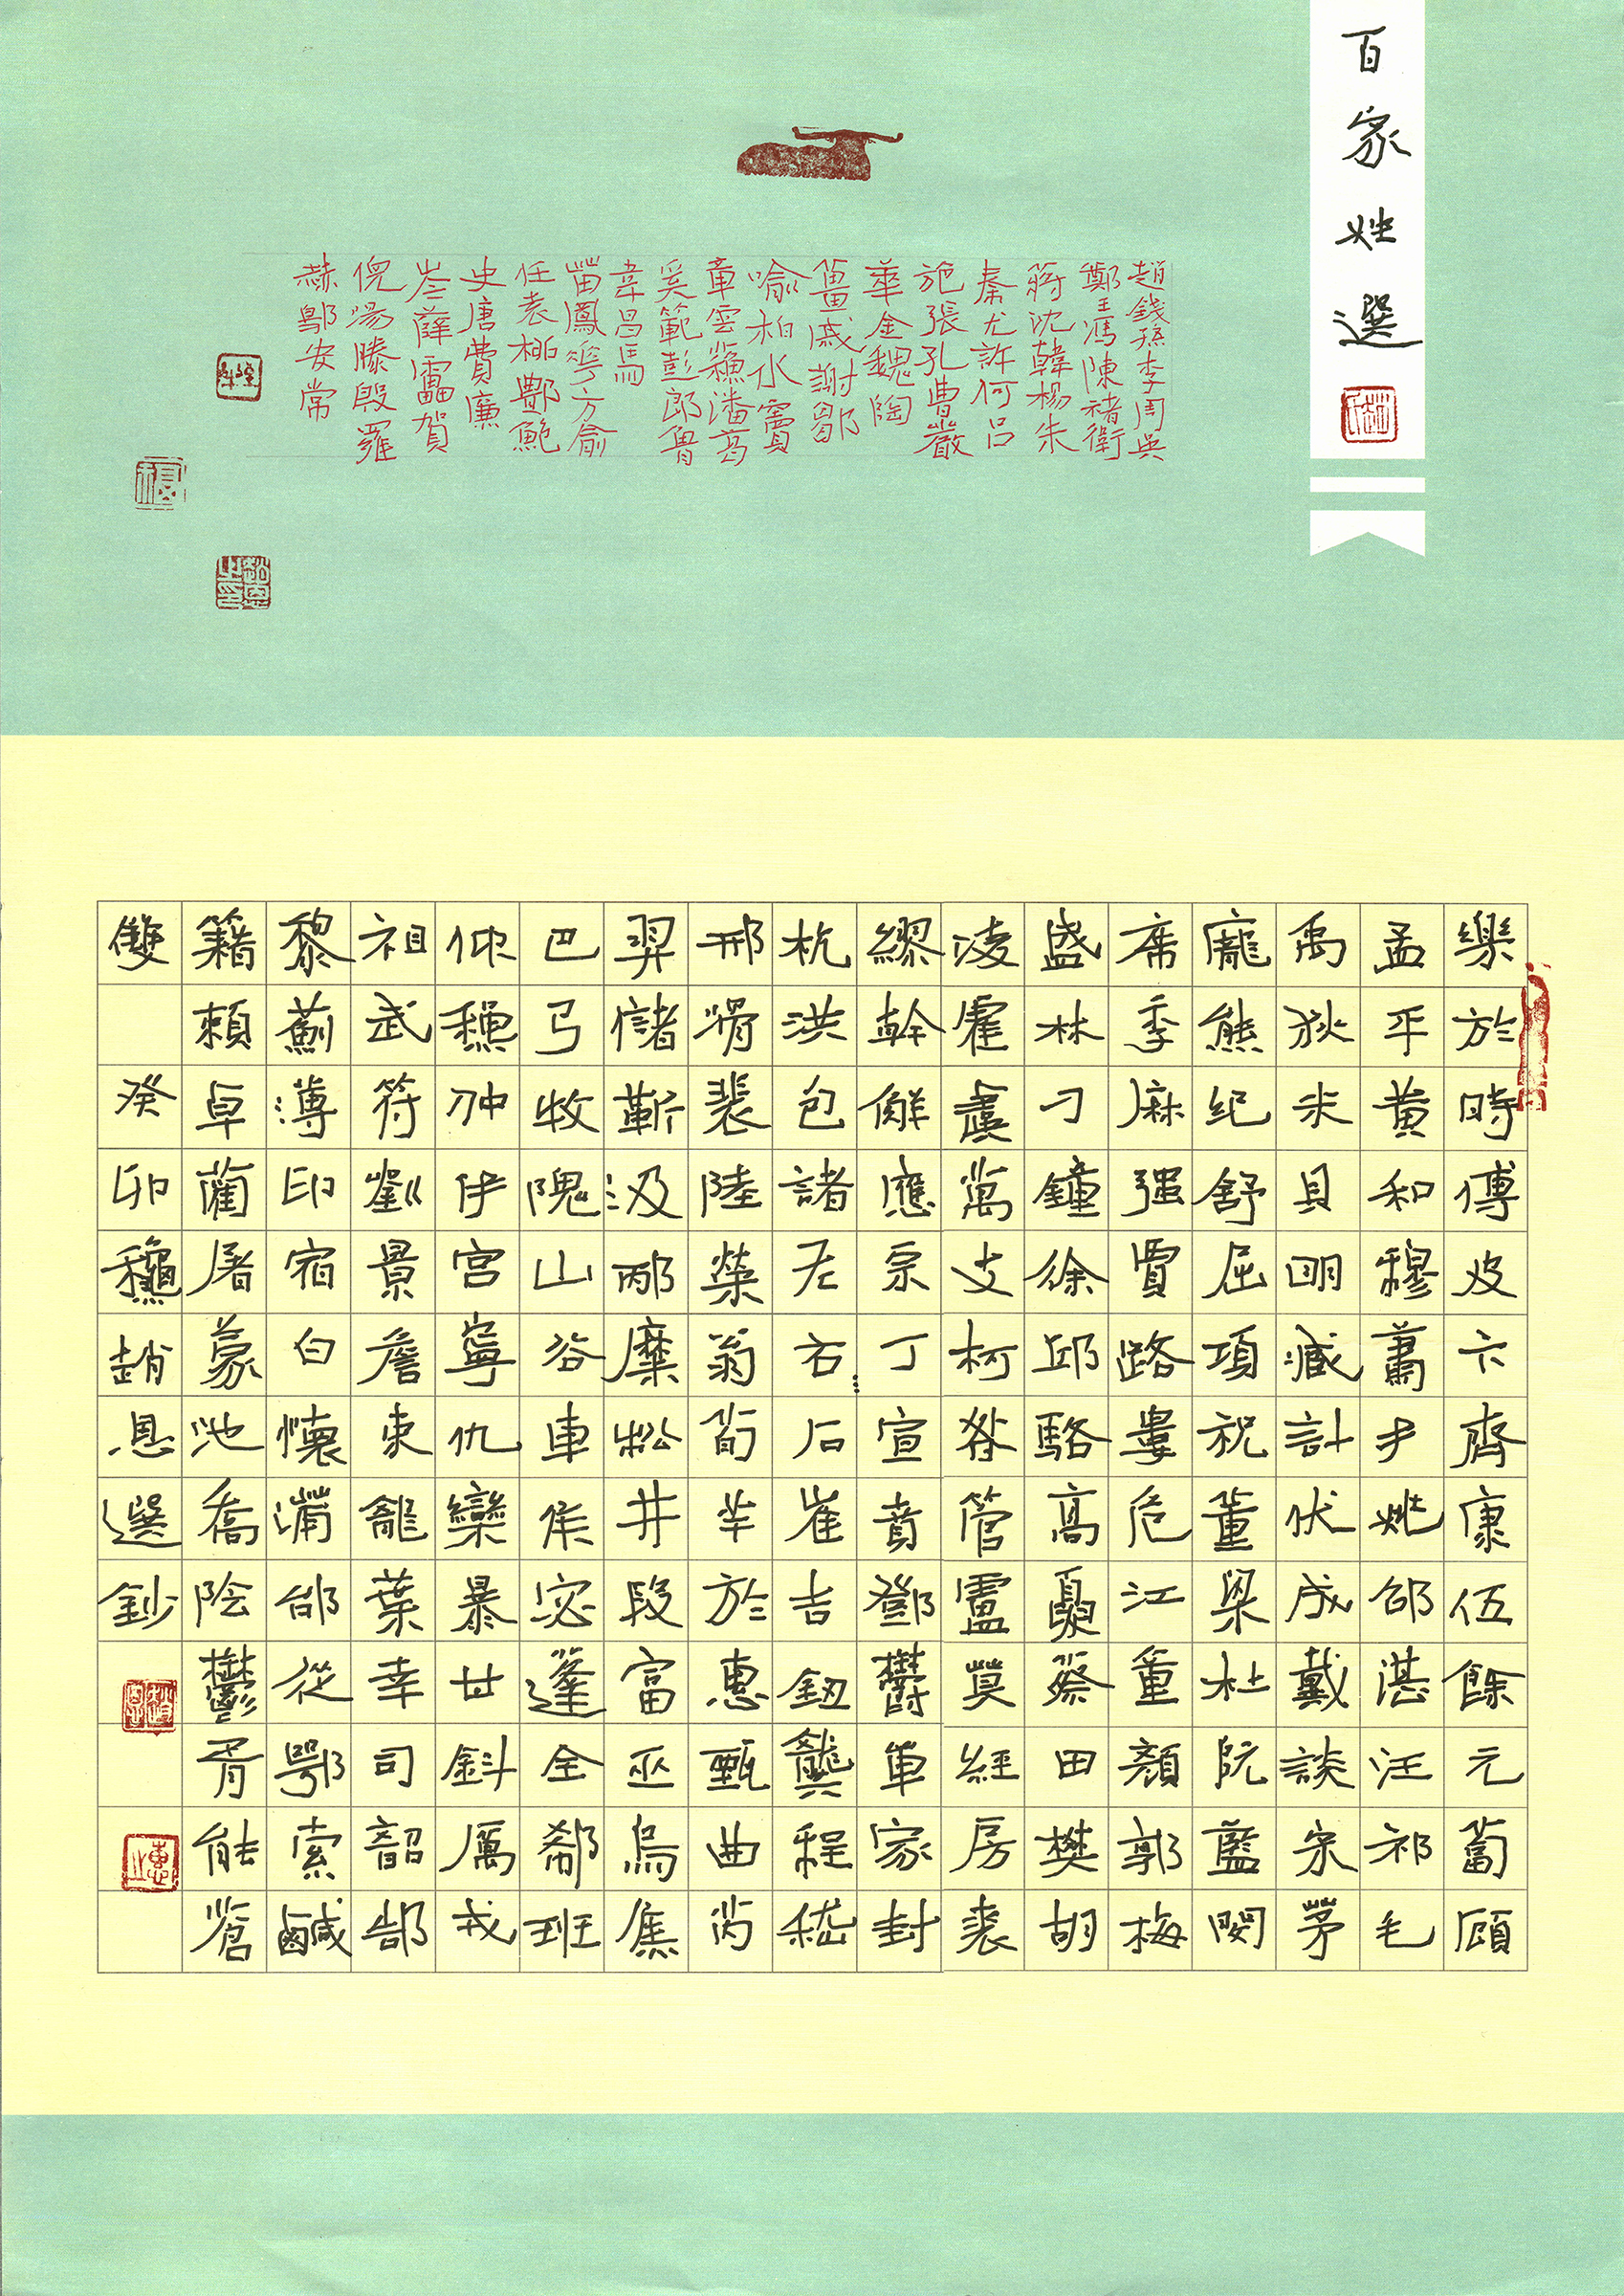 百家姓選
趙錢孫李周吳
鄭王馮陳褚衛
蔣沈韓楊朱
秦尤許何呂
施張孔曹嚴
華金魏陶
薑戚謝鄒
喻柏水竇
章雲蘇潘葛
奚範彭郎魯
韋昌馬
苗鳳花方俞
任袁柳酆鮑
史唐費廉
岑薛雷賀
倪湯滕殷羅
赫鄔安常
樂於時傅皮卞齊康伍餘元蔔顧
孟平黃和穆蕭尹姚邵湛汪祁毛
禹狄米貝明臧計伏成戴談宋茅
龐熊紀舒屈項祝董梁杜阮藍閔
席季麻強賈路婁危江童顏郭梅
盛林刁鐘徐邱駱高夏蔡田樊胡
凌霍虞萬支柯昝管盧莫經房裘
繆幹解應宗丁宣賁鄧鬱單家封
杭洪包諸左石崔吉鈕龔程嵇
邢滑裴陸榮翁荀羊於惠甄曲芮
羿儲靳汲邴糜松井段富巫烏焦
巴弓牧隗山谷車侯宓蓬全郗班
仰穠仲伊宮寧仇欒暴甘鈄厲戎
祖武符劉景詹束龍葉幸司韶郜
黎薊薄印宿白懷蒲邰從鄂索鹹
籍賴卓藺屠蒙池喬陰鬱胥能蒼
雙
癸卯秋趙恩選鈔